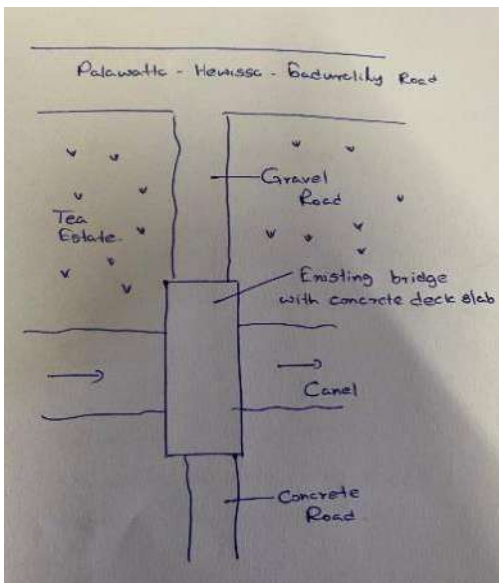 Palawatta - Hewissa - Badureliya Road
Gravel
Road
Tea
Estate.
Existing bridge
with concrete deck slab
Canel
Concrete
Road